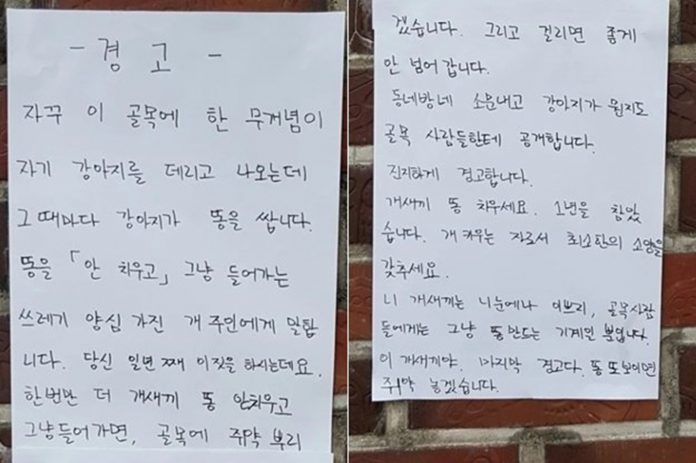 - 경 고 -
자꾸 이 골목에 한 무개념이
자기 강아지를 데리고 나오는데
그때마다 강아지가 똥을 쌉니다.
똥을 「안 치우고」 그냥 들어가는
쓰레기 양심 가진 개주인에게 말합
니다. 당신 일년 째 이짓을 하시는데요.
한번만 더 개새끼 똥 안치우고
그냥들어가면, 골목에 쥐약 뿌리
겠습니다. 그리고 걸리면 좋게
안 넘어갑니다.
동네방네 소문내고 강아지가 뭔지도
골목 사람들한테 공개합니다.
진지하게 경고합니다.
개새끼 똥 치우세요. 1년을 참았
습니다. 개 키우는 자로서 최소한의 소양을
갖추세요.
니 개새끼는 니눈에나 이쁘지, 골목사람
들에게는 그냥 똥만드는 기계일 뿐입니다.
이 개새끼야. 마지막 경고다. 똥 또보이면
쥐약 놓겠습니다.